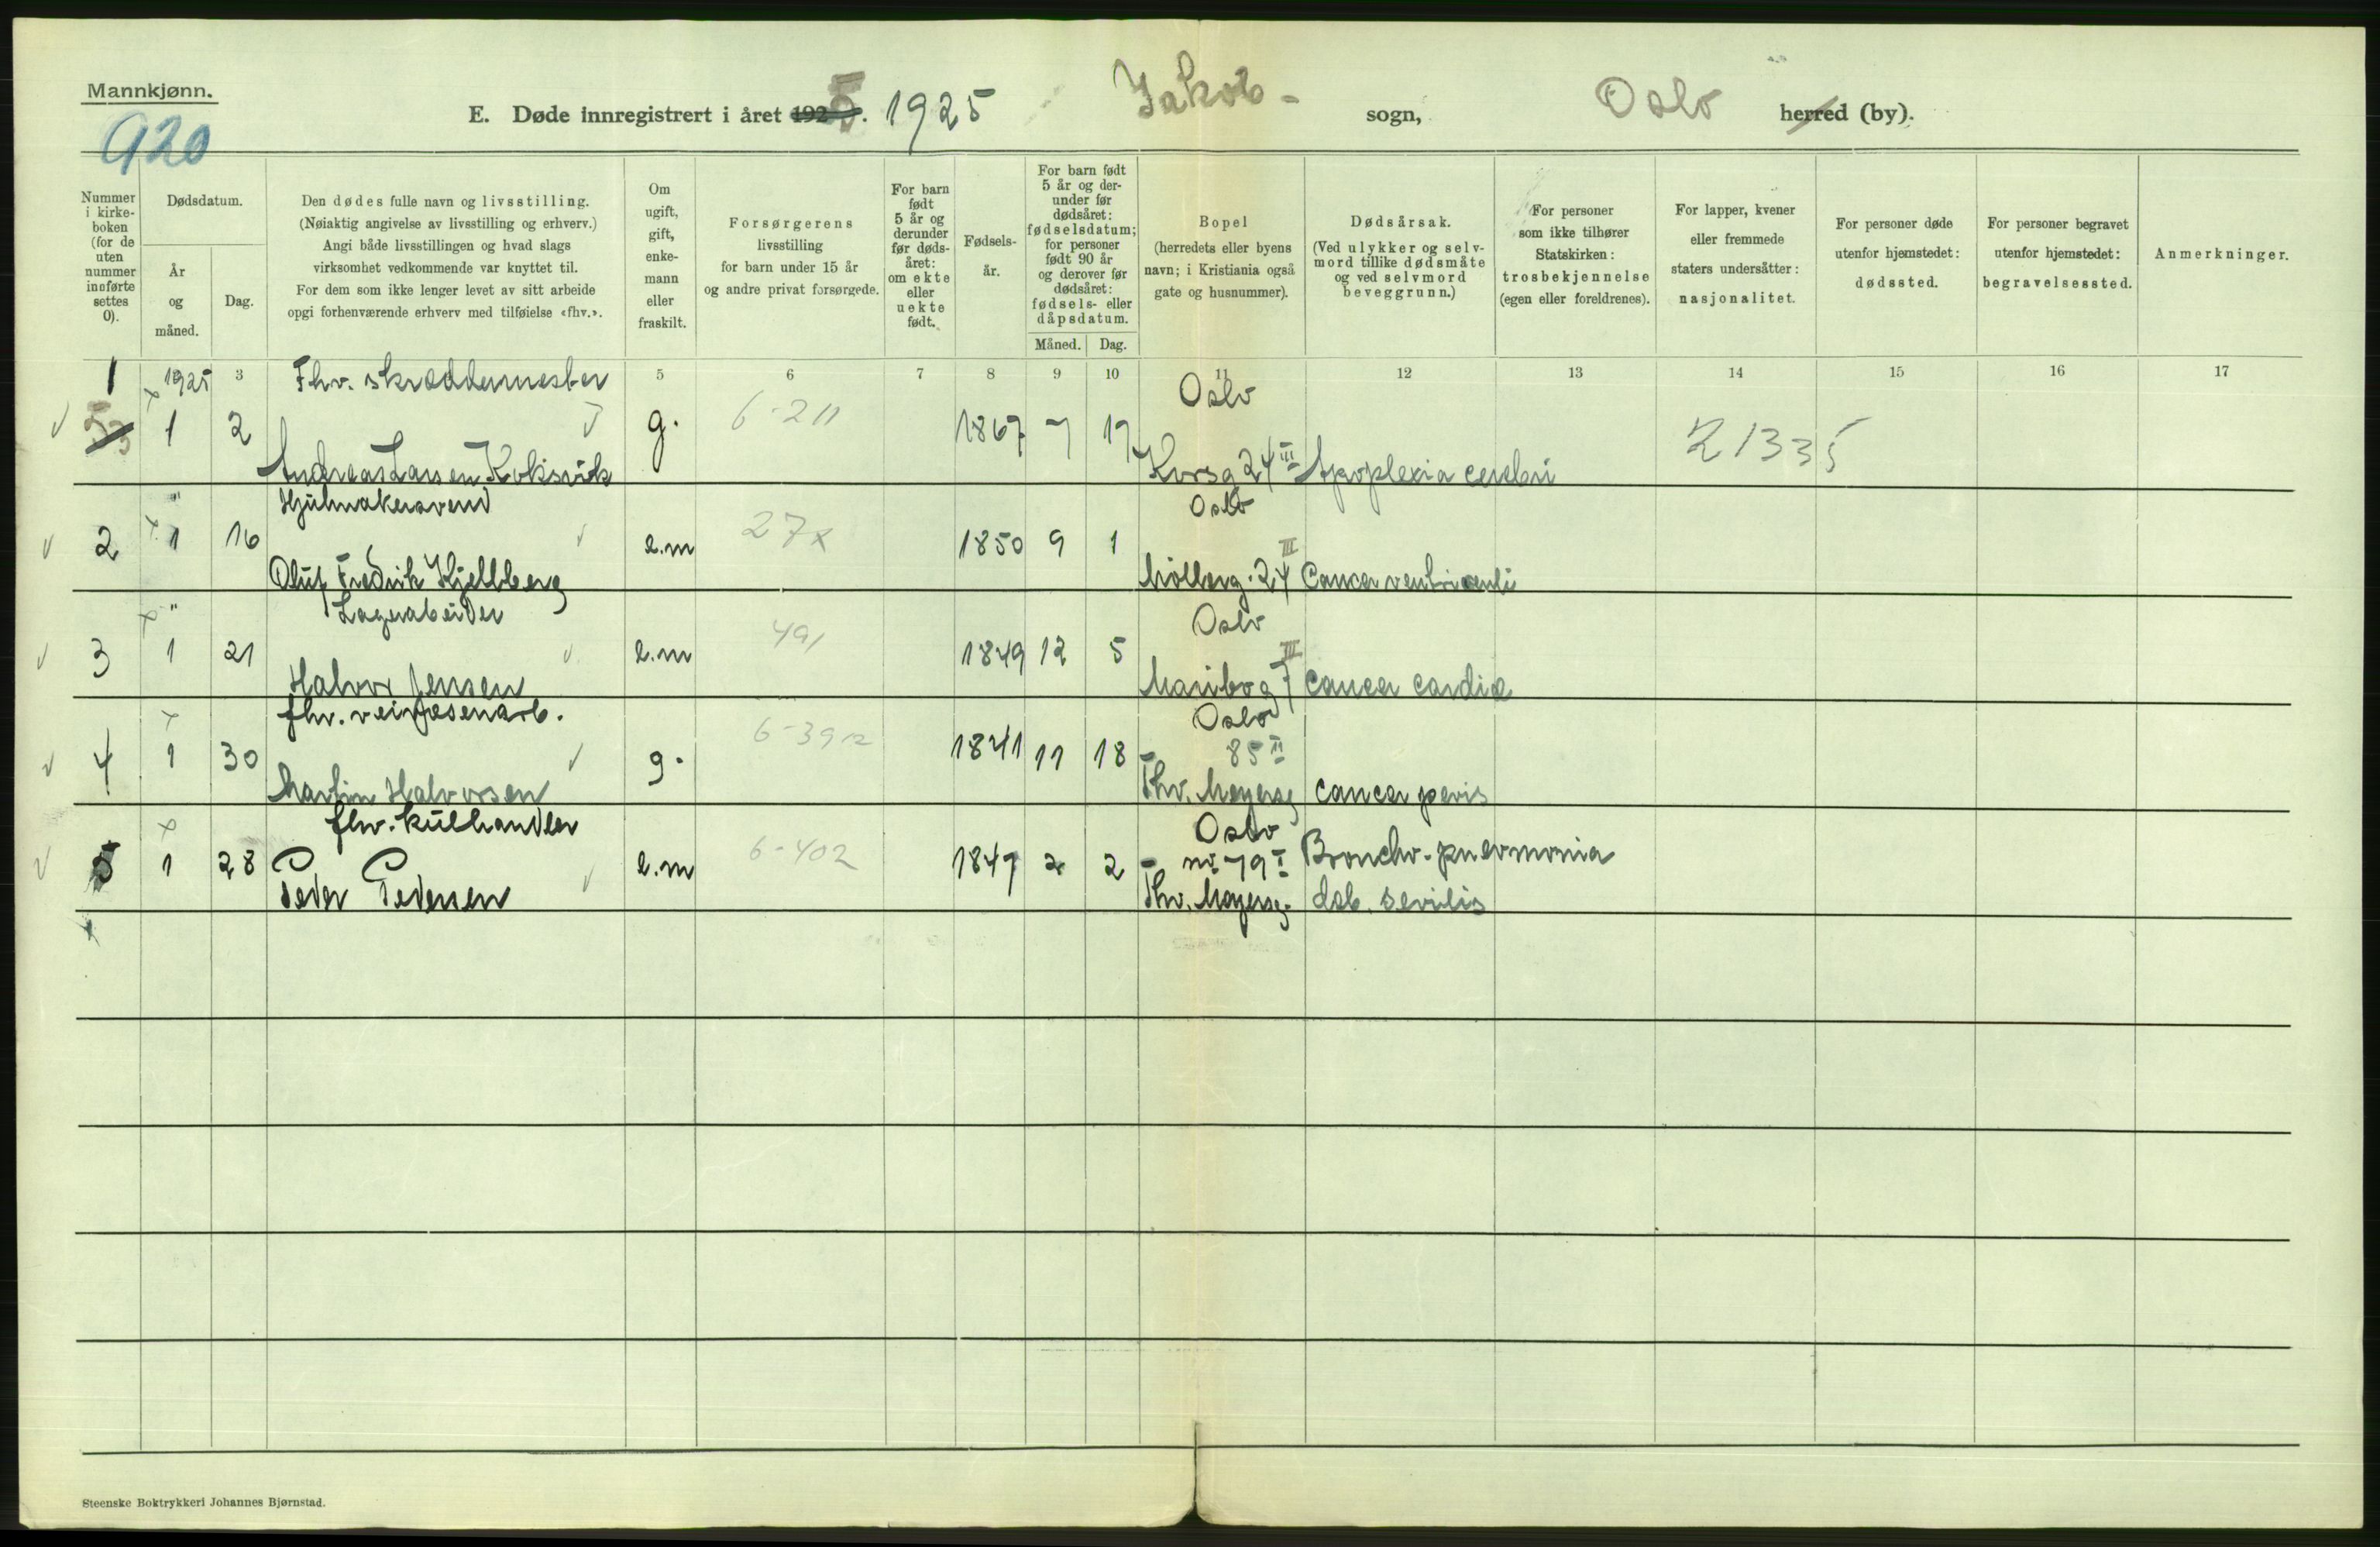 Mannkjønn.
920
E. Døde innregistrert i året 1925. 1925 Jakob - sogn, Oslo herred (by).
Nummer i kirke-boken (for de uten nummer innførte settes 0).
Dødsdatum.
År og måned.
Dag.
Den dødes fulle navn og livsstilling.
(Nøiaktig angivelse av livsstilling og erhverv.)
Angi både livsstillingen og hvad slags
virksomhet vedkommende var knyttet til.
For dem som ikke lenger levet av sitt arbeide
opgi forhenværende erhverv med tilføielse «fhv.».
Om ugift, gift, enke-mann eller fraskilt.
Forsørgerens
livsstilling
for barn under 15 år
og andre privat forsørgede.
For barn født 5 år og derunder før døds-året: om ekte eller uekte født.
Fødsels-år.
For barn født 5 år og der-under før dødsåret: fødselsdatum; for personer født 90 år og derover før dødsåret: fødsels- eller dåpsdatum.
Måned. Dag.
Bopel
(herredets eller byens
navn; i Kristiania også
gate og husnummer).
Dødsårsak.
(Ved ulykker og selv-
mord tillike dødsmåte
og ved selvmord
beveggrunn.)
For personer
som ikke tilhører
Statskirken:
trosbekjennelse
(egen eller foreldrenes).
For lapper, kvener
eller fremmede
staters undersåtter:
nasjonalitet.
For personer døde
utenfor hjemstedet:
dødssted.
For personer begravet
utenfor hjemstedet:
begravelsessted.
Anmerkninger.
3 5 6 7 8 9 10 11 12 13 14 15 16 17
1 1925 Fhv. skreddermester Oslo
1 2 g. 6-211 1867 7 17 21335
Andreas Larsen Koksvik Korsg 24 III Apoplexia cerebri
" Hjulmakersvend Oslo
2 1 16 e.m 27x 1850 9 1
Oluf Fredrik Kjellberg Møllerg. 24 III Cancer ventriculi
" Lagerabeider Oslo
3 1 21 e.m 491 1849 12 5
Halvor Jensen Maribog 7 III Cancer cardia
fhv. veivesenarb. Oslo
4 1 30 g. 6-392 1841 11 18 - 85 II
Martin Halvorsen Thv. Meyersg cancer penis
fhv. kulhandler Oslo
5 1 28 e.m 6-402 1847 2 2 - no 79 I Broncho-pneomonia
Peder Pedersen Thv. Meyersg. deb. senilis
Steenske Boktrykkeri Johannes Bjørnstad.